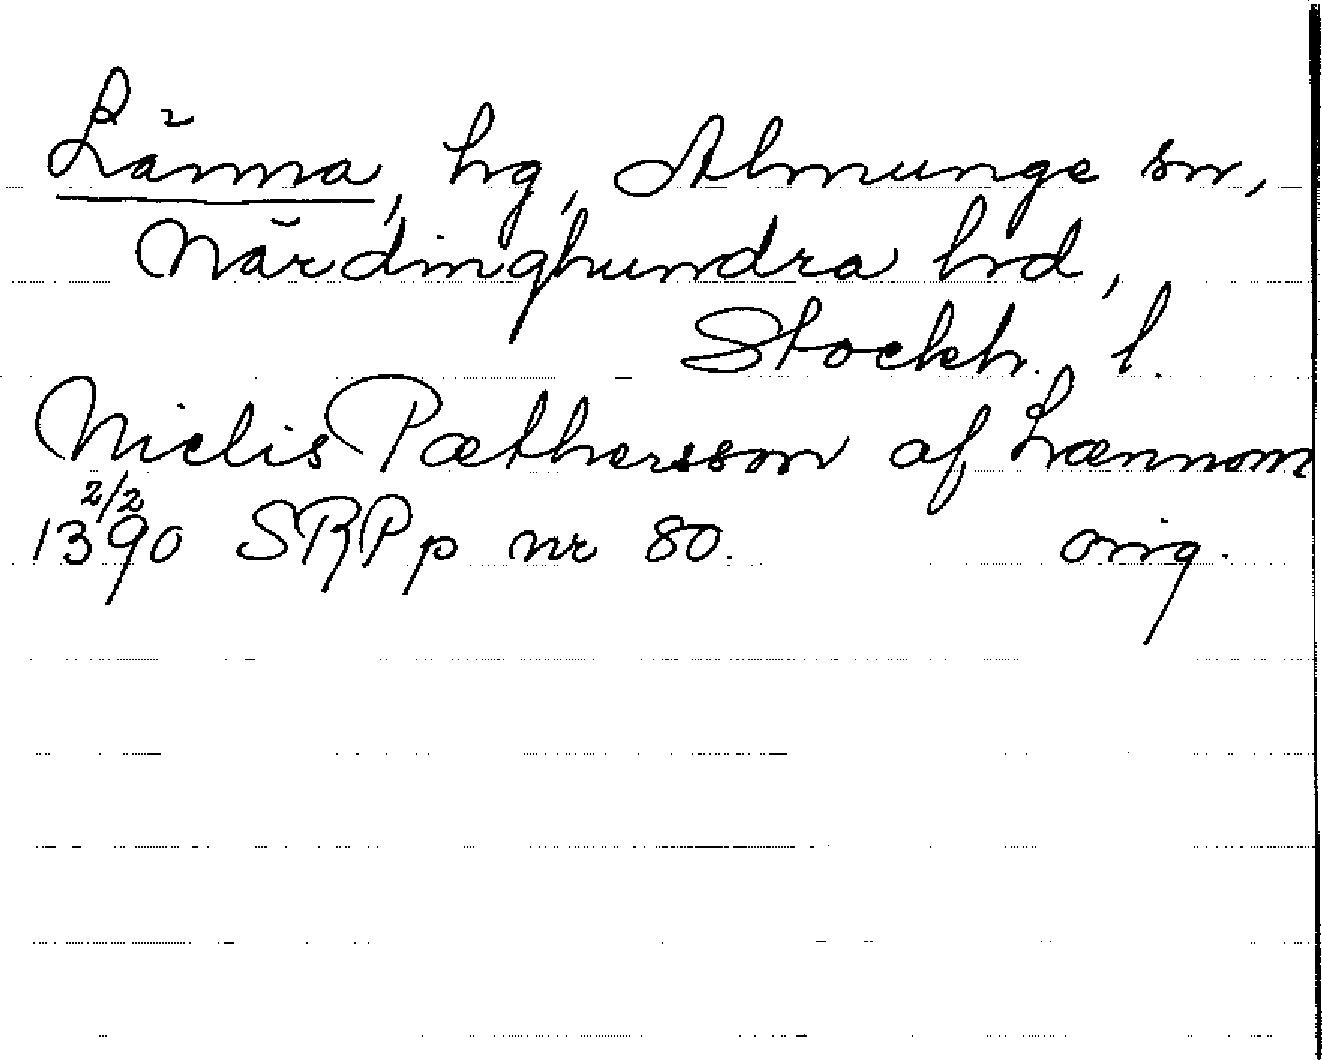 Länna, hg, Almunge sn,
Närdinghundra hrd,
Stockh. l.
Nielis Pæthersson af Lænnom
2/2
1390 SRPp nr 80. orig.